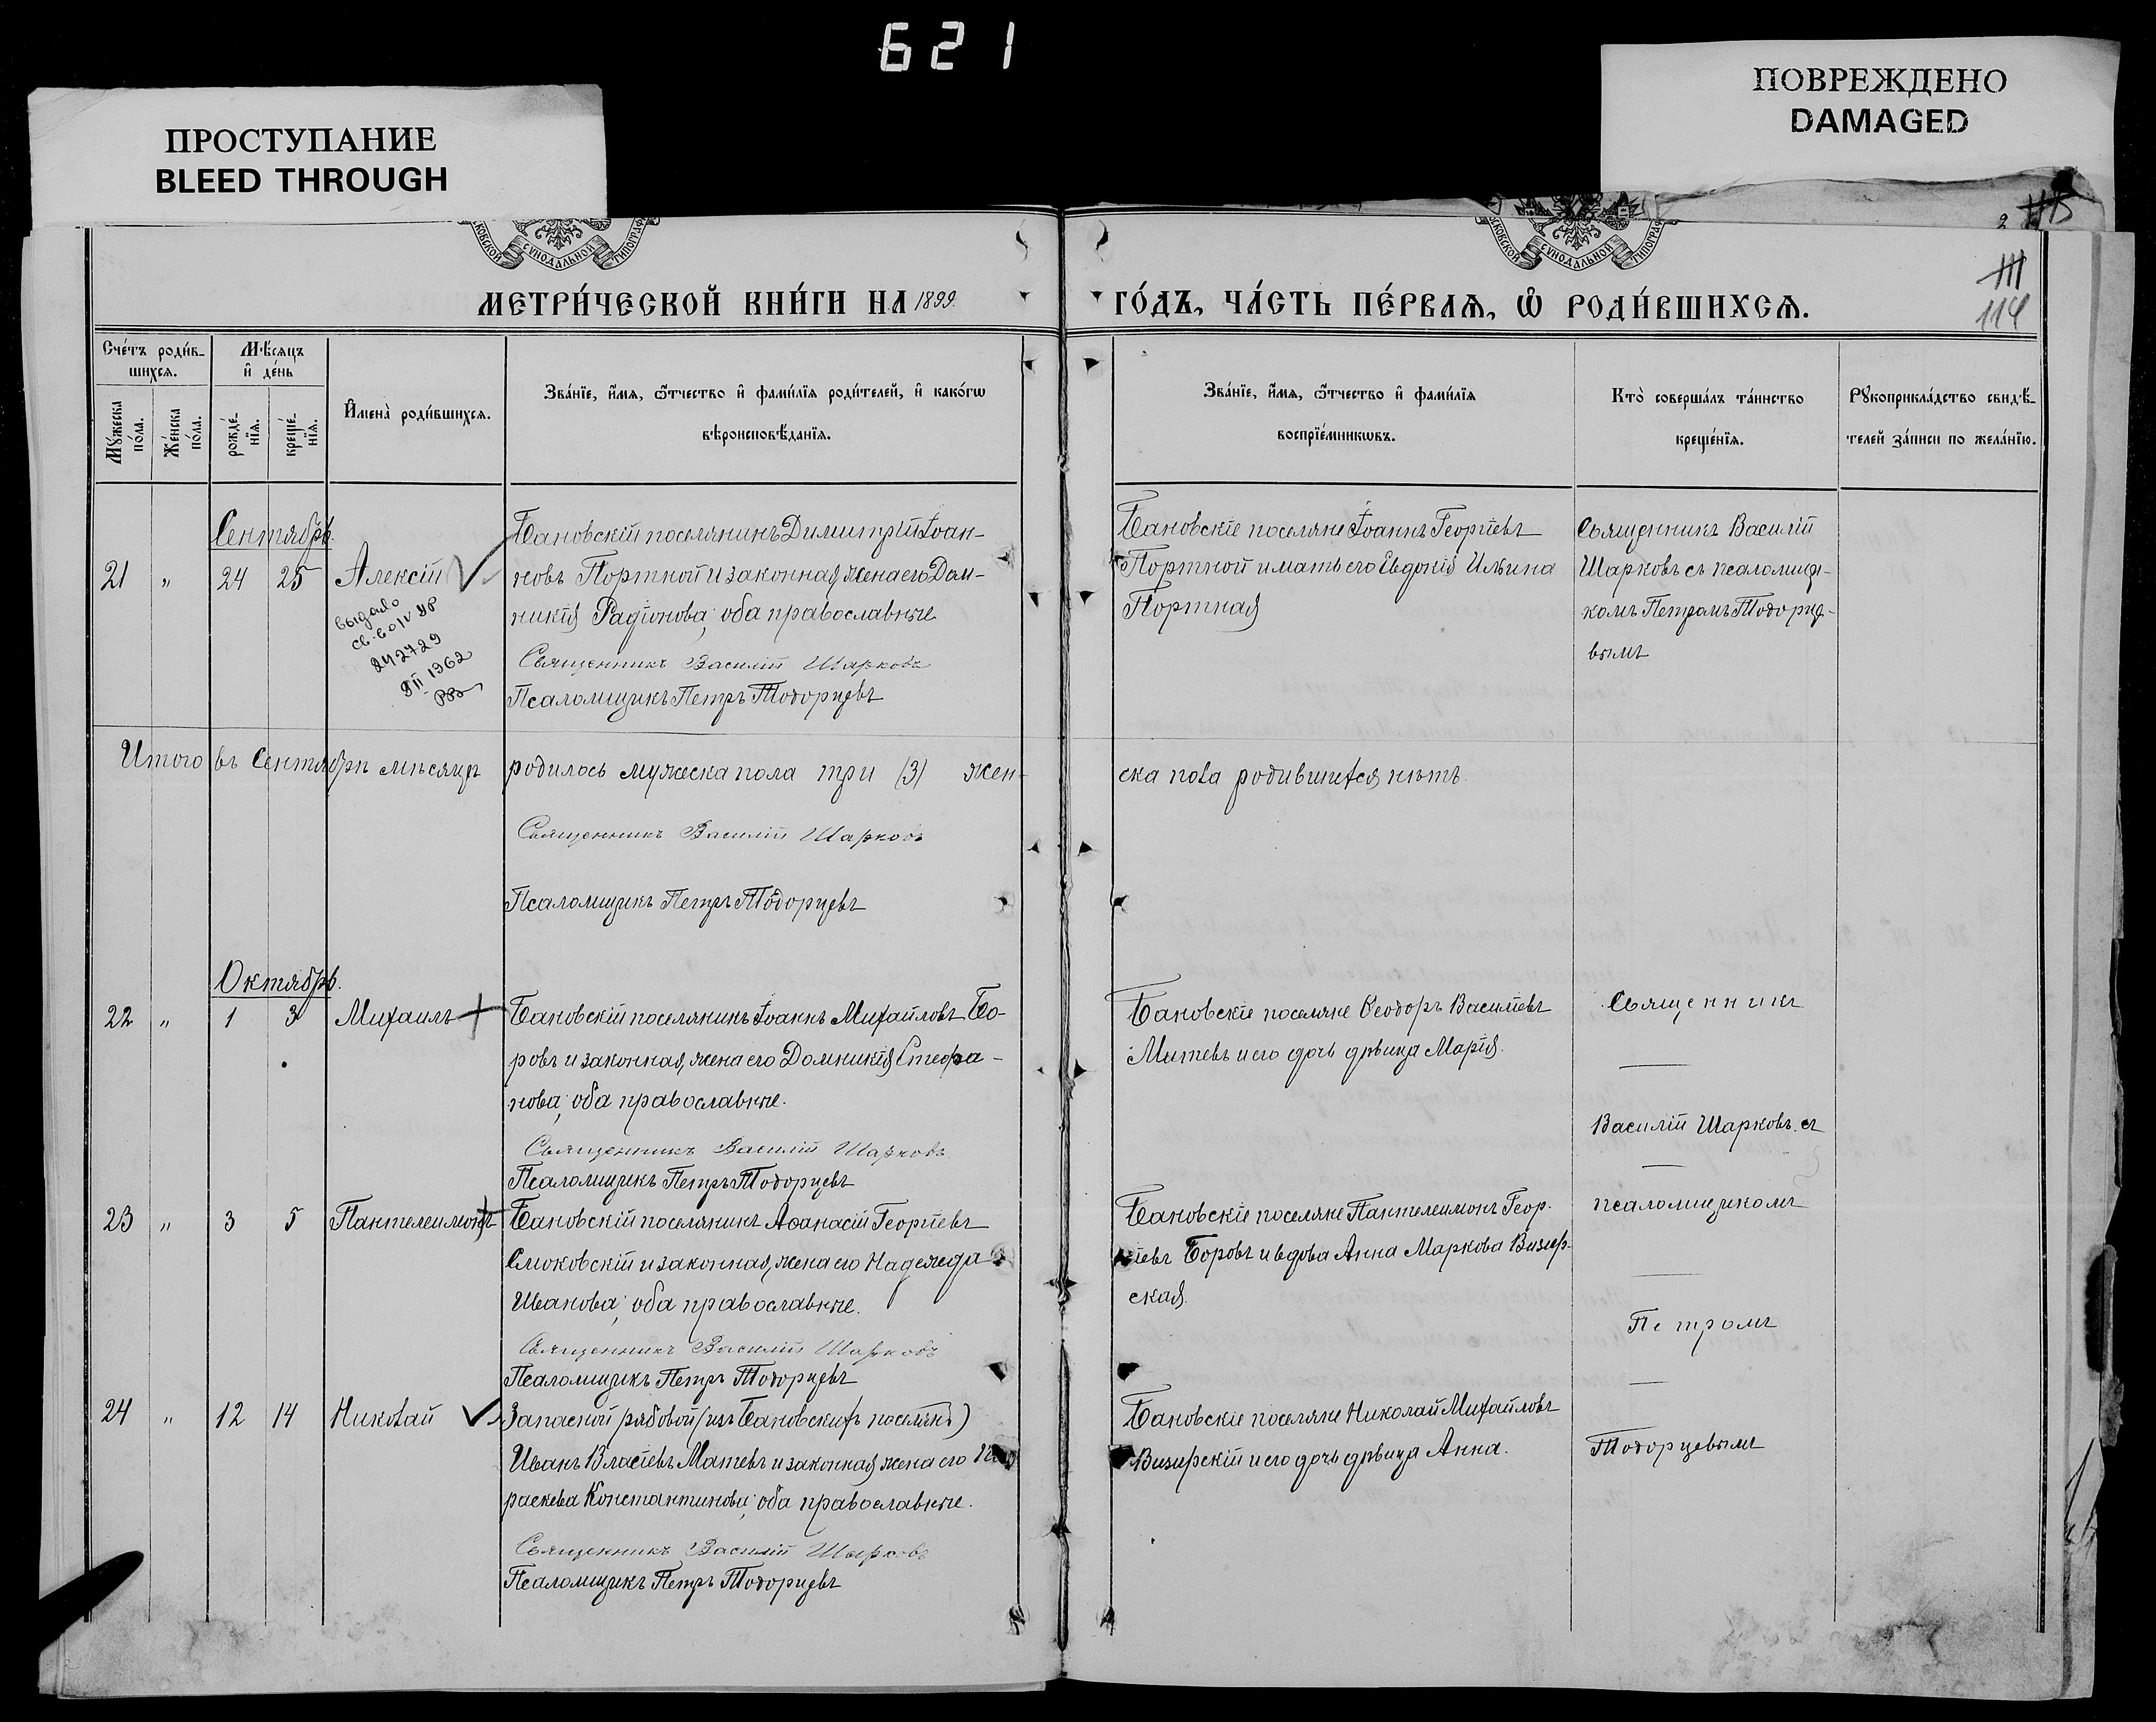 621
ПРОСТУПАНИЕ
BLEED THROUGH
ПОВРЕЖДЕНО
DAMAGED
СУНОДАЛЬНОЙ
СУНОДАЛЬНОЙ ТИПОГРАФ
111
114
МЕТРИ́ЧЕСКОЙ КНИ́ГИ НА 1899.
ГО́ДЪ, ЧА́СТЬ ПЕ́РВАѦ, Ѽ РОДИ́ВШИХСѦ.
Сче́тъ роди́в-
шихсѧ.
Мѣ́сѧцъ
и҆ де́нь
Мꙋ́жеска
по́ла.
Же́нска
по́ла.
рожде́-
нїѧ.
креще́-
нїѧ.
И҆мена̀ роди́вшихсѧ.
Зва́нїе, и҆́мѧ, ѻ҆́тчество и҆ фами́лїѧ роди́телей, и҆ како́гѡ
вѣроисповѣ́данїѧ.
Зва́нїе, и҆́мѧ, ѻ҆́тчество и҆ фами́лїѧ
воспрїе́мникѡвъ.
Кто̀ соверша́лъ та́инство
креще́нїѧ.
Рꙋкоприкла́дство свидѣ́-
телей за́писи по жела́нїю.
Сентябрь.
21 " 24 25 Алексій
Бановскій поселянинъ Димитрій Іоан-
новъ Портной и законная жена его Дом-
никія Радіонова; оба православные
Священникъ Василій Шарковъ
Псаломщикъ Петръ Тодорцевъ
выдано
242729
1962
Бановскіе поселяне Іоаннъ Георгіевъ
Портной и мать его Евдокія Ильина
Портная
Священникъ Василій
Шарковъ съ псаломщи-
комъ Петромъ Тодорце-
вымъ
Итого въ Сентябрѣ мѣсяцѣ родилось мужеска пола три (3) жен-
ска пола родившихся нѣтъ.
Священникъ Василій Шарковъ
Псаломщикъ Петръ Тодорцевъ
Октябрь.
22 " 1 3 Михаилъ
Бановскій поселянинъ Іоаннъ Михайловъ Бо-
ровъ и законная жена его Домникія Стефа-
нова; оба православные.
Священникъ Василій Шарковъ
Псаломщикъ Петръ Тодорцевъ
Бановскіе поселяне Ѳеодоръ Василіевъ
Митевъ и его дочь дѣвица Марія.
Священникъ
Василій Шарковъ съ
23 " 3 5 Пантелеимонъ
Бановскій поселянинъ Аѳанасій Георгіевъ
Смоковскій и законная жена его Надежда
Иванова; оба православные.
Священникъ Василій Шарковъ
Псаломщикъ Петръ Тодорцевъ
Бановскіе поселяне Пантелеимонъ Геор-
гіевъ Боровъ и вдова Анна Маркова Визир-
ская.
псаломщикомъ
Петромъ
24 " 12 14 Николай
Запасной рядовой (изъ Бановскихъ поселянъ)
Иванъ Власіевъ Матевъ и законная жена его Па
раскева Константинова; оба православные.
Священникъ Василій Шарковъ
Псаломщикъ Петръ Тодорцевъ
Бановскіе поселяне Николай Михайловъ
Визирскій и его дочь дѣвица Анна.
Тодорцевымъ